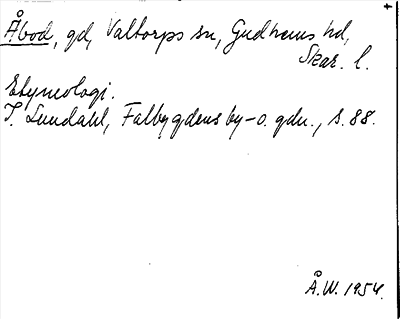 Åbod, gd, Valtorps sn, Gudhems hd,
Skar. l.
Etymologi.
I. Lundahl, Falbygdens by-o. gdn., s. 88.
Å.W. 1954.